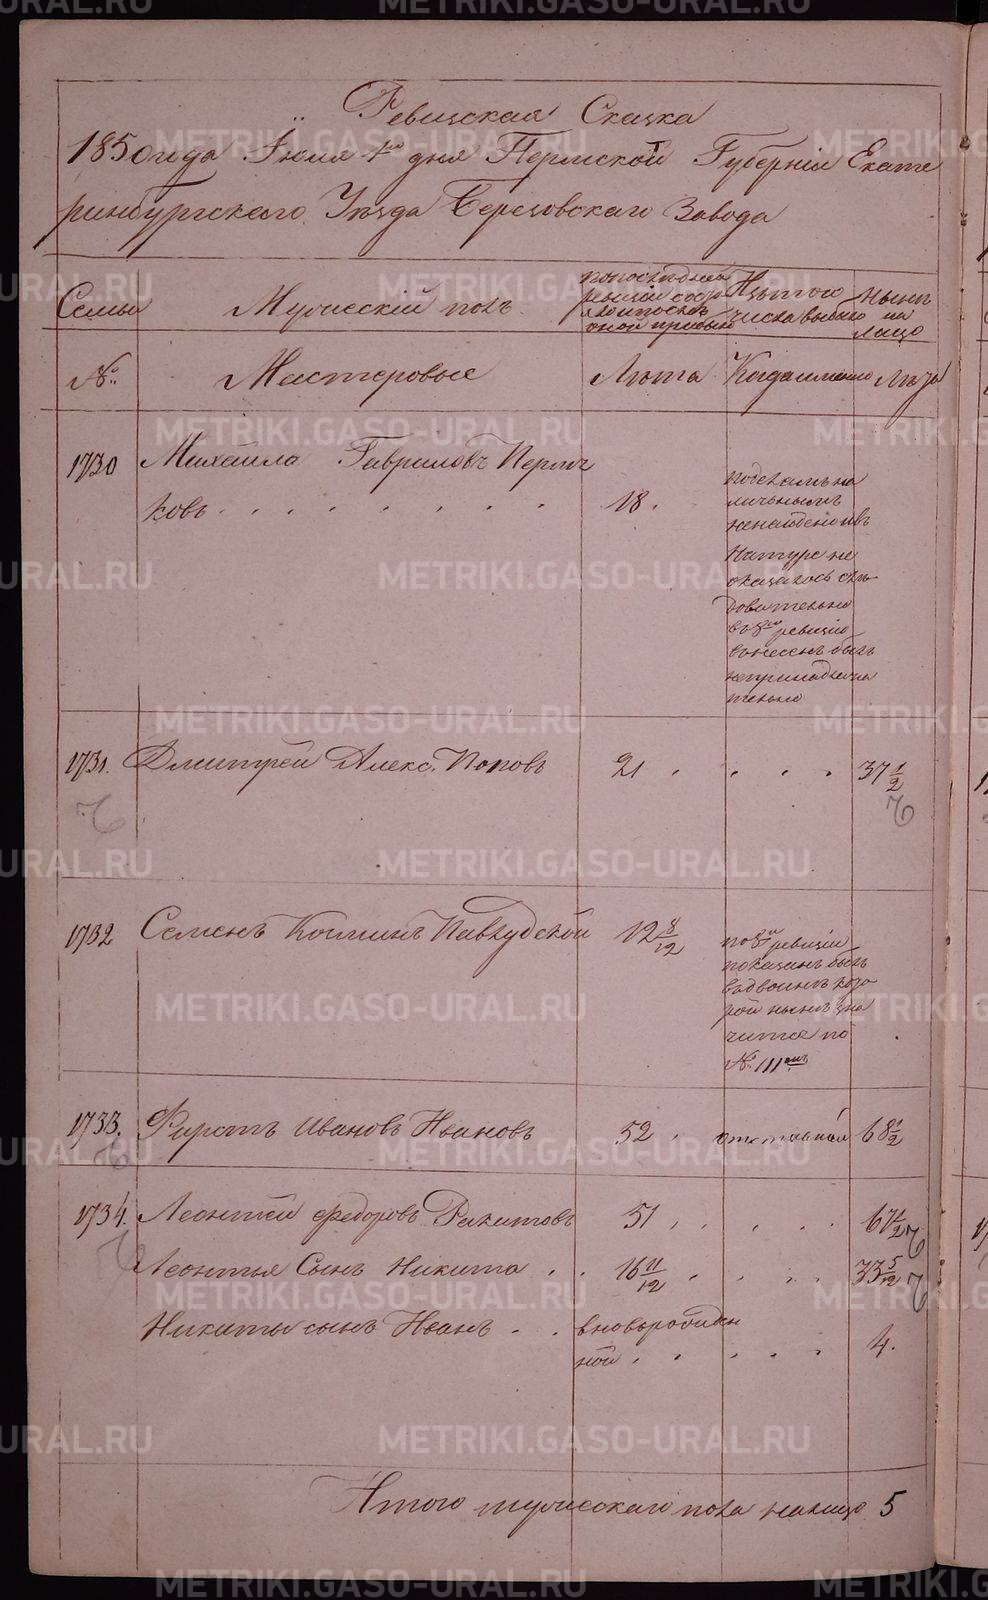 Ревизская Сказка
1850 года Июля 1го дня Пермской Губернiи Екате
ринбургскаго Уезда Березовскаго Завода
Семьи
Мужескiй полъ
по последней
ревизiи состо
яло и после
оной прибыло
Изъ того
числа выбыло
Ныне
на
лицо
№
Мастеровые
Лета
Когда именно
Лета
1730
Михайла Гавриловъ Перми
ковъ
18.
ненайдено и въ
Натуре не
оказалось сле
довательно
въ 8ю ревизiю
внесенъ былъ
непринадлежа
тельно
1731.
Дмитрей Алекс. Поповъ
21
37 1/2
1732
Семенъ
12 8/12
по 8й ревизiи
показанъ былъ
вдвойне кото
рой ныне зна
чится по
№ 111мъ
1733.
Фирстъ Ивановъ Ивановъ
52
отставной
68 1/2
1734.
Леонтей Федоровъ Ракитовъ
51
67 1/2
Леонтья Сынъ Никита
16 11/12
33 5/12
Никиты сынъ Иванъ
вновьрожден
ной
4.
Итого мужескаго пола налицо 5
METRIKI.GASO-URAL.RU